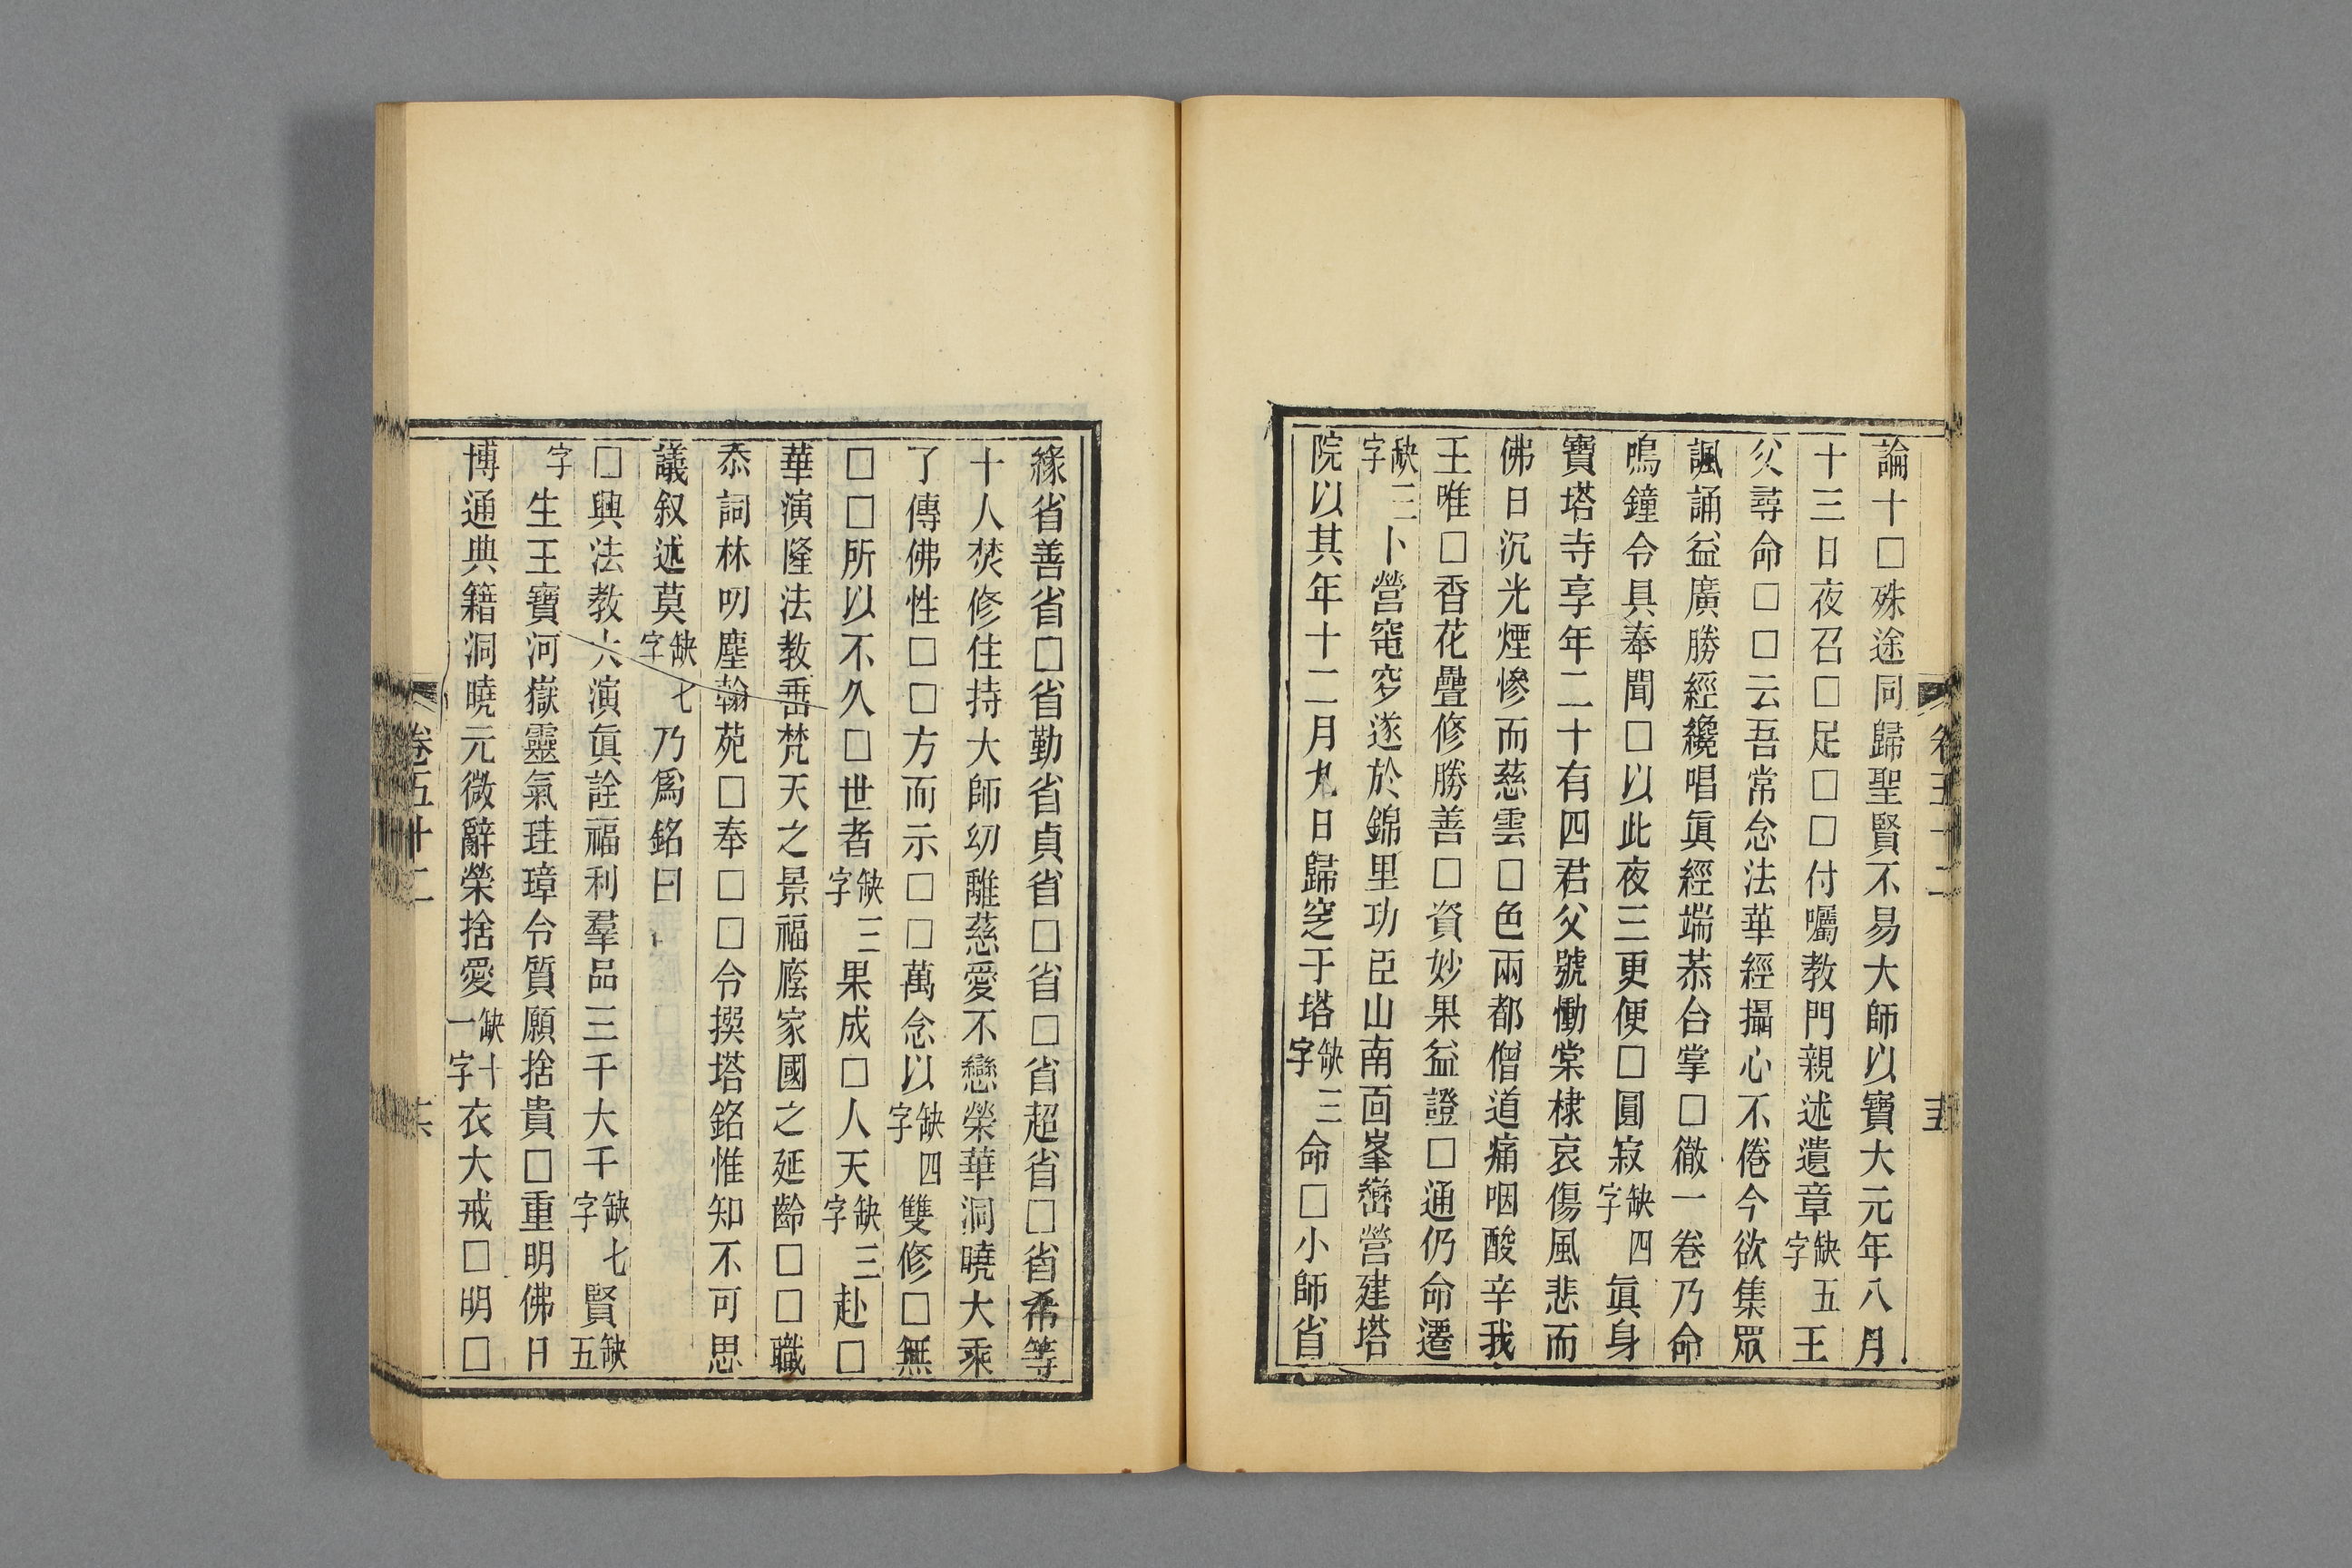 論十□殊途同歸聖賢不易大師以寶大元年八月
十三日夜召□足□□付囑教門親述遺章缺五字王
父尋命□□云吾常念法華經攝心不倦今欲集眾
諷誦益廣勝經纔唱眞經端恭合掌□徹一卷乃命
鳴鐘令具奉聞□以此夜三更便□圓寂缺四字眞身
寶塔寺享年二十有四君父號慟棠棣哀傷風悲而
佛日沉光煙慘而慈雲□色兩都僧道痛咽酸辛我
王唯□香花疊修勝善□資妙果益證□通仍命遷
缺三字卜營窀穸遂於錦里功臣山南面峯巒營建塔
院以其年十二月九日歸窆于塔缺三字命□小師省
緣省善省□省勤省貞省□省□省超省□省希等
十人焚修住持大師幼離慈愛不戀榮華洞曉大乘
了傳佛性□□方而示□□萬念以缺四字雙修□無
□□所以不久□世者缺三字果成□人天缺三字赴□
華演隆法教垂梵天之景福廕家國之延齡□□職
忝詞林叨塵翰苑□奉□□令撰塔銘惟知不可思
議叙述莫缺七字乃爲銘曰
□興法教大演眞詮福利羣品三千大千缺七字賢缺五
字生王寶河嶽靈氣珪璋令質願捨貴□重明佛日
博通典籍洞曉元微辭榮捨愛缺十一字衣大戒□明□
卷五十二